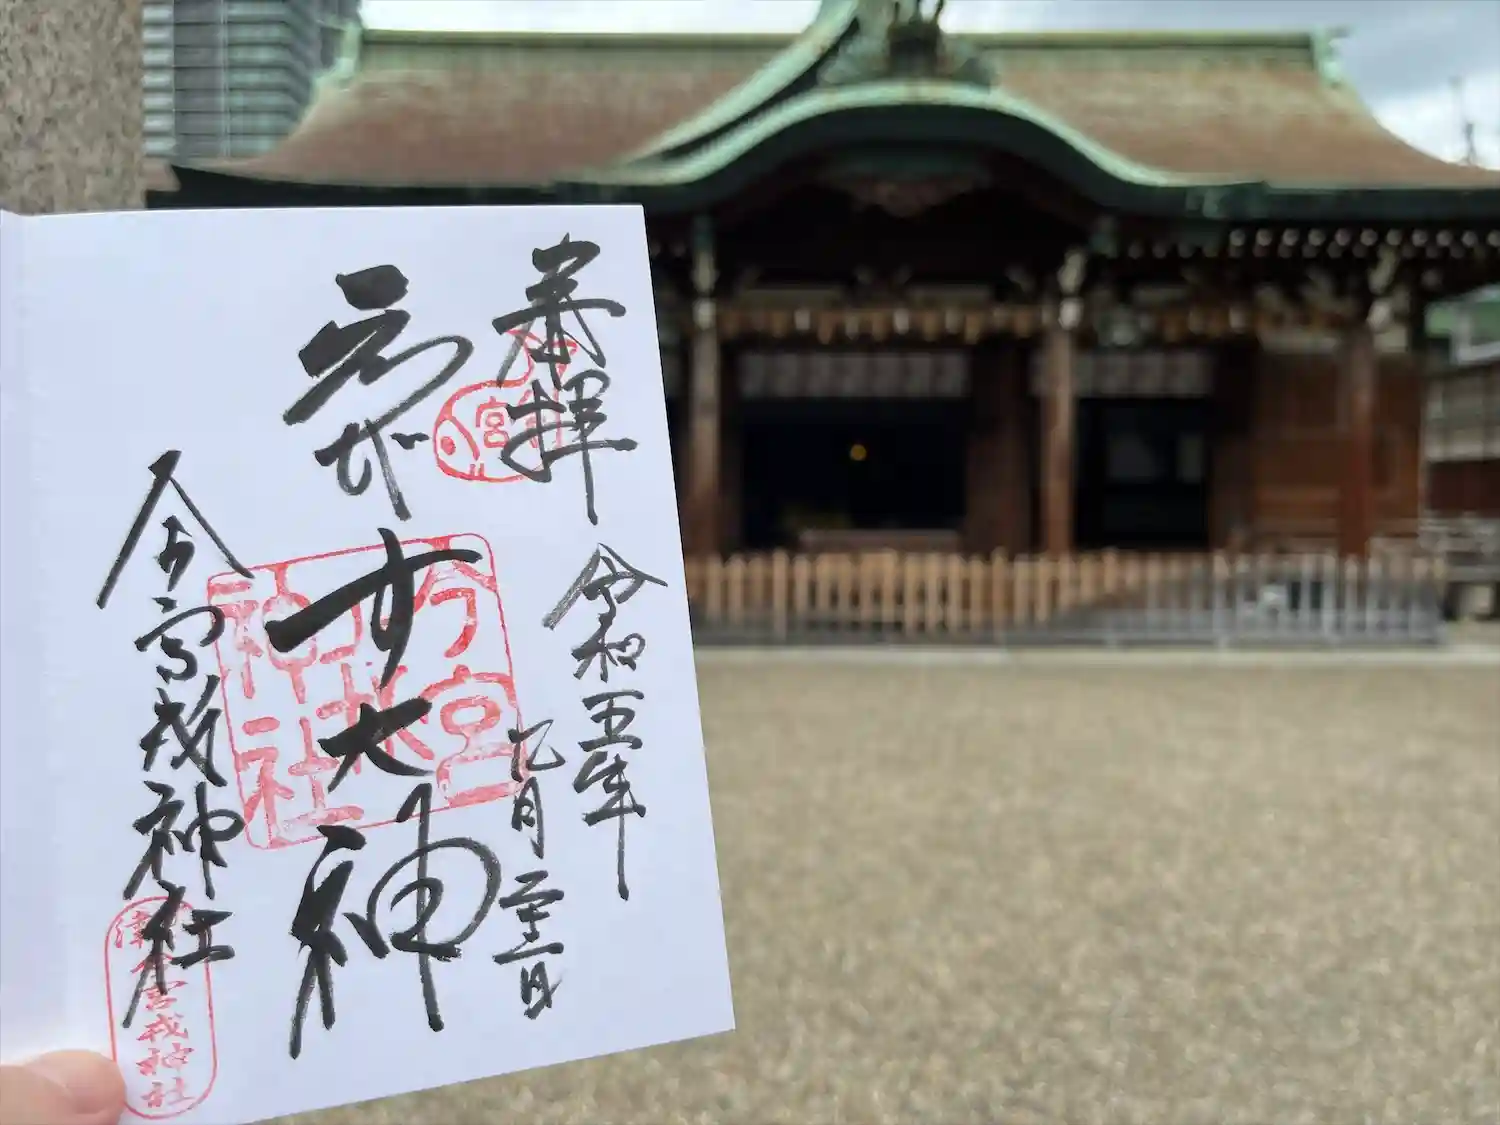 奉拝
令和五年
七月二十二日
ゑびす大神
今宮戎神社
今宮
今宮戎神社
今宮戎神社